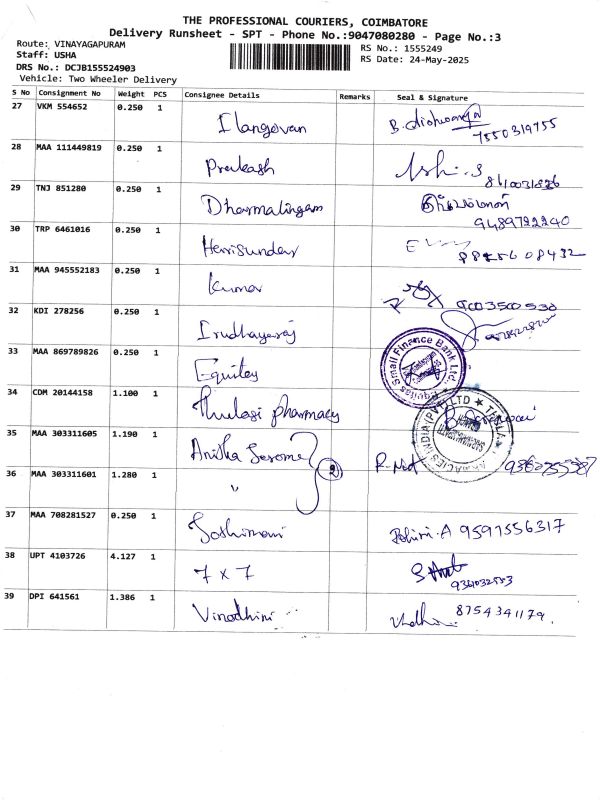 THE PROFESSIONAL COURIERS, COIMBATORE
Delivery Runsheet - SPT - Phone No.:9047080280 - Page No.:3
Route: VINAYAGAPURAM
Staff: USHA
DRS No.: DCJB155524903
Vehicle: Two Wheeler Delivery
RS No.: 1555249
RS Date: 24-May-2025
S No Consignment No Weight PCS Consignee Details Remarks Seal & Signature
27 VKM 554652 0.250 1 Ilangovan 7550319755
28 MAA 111449819 0.250 1 Prakash
29 TNJ 851280 0.250 1 Dharmalingam 9489722240
30 TRP 6461016 0.250 1 Harrisundar
31 MAA 945552183 0.250 1 Kumar
32 KDI 278256 0.250 1 Irudhayaraj
33 MAA 869789826 0.250 1 Equitas Small Finance Bank Ltd.
34 CDM 20144158 1.100 1 Thulasi pharmacy
35 MAA 303311605 1.190 1 Anisha Jerome 2
36 MAA 303311601 1.280 1 "
37 MAA 708281527 0.250 1 Joshimani A 9597556317
38 UPT 4103726 4.127 1 7 x 7
39 DPI 641561 1.386 1 Vinodhini 8754341179